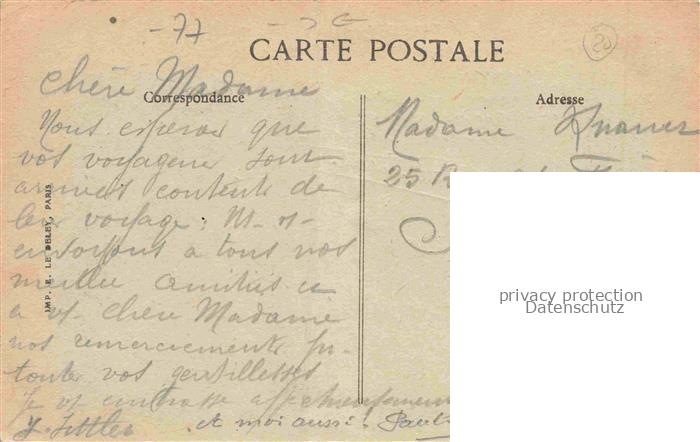 -77
20
CARTE POSTALE
Correspondance
Adresse
Chère Madame
Nous esperons que
vos voyageurs sont
arrivés contents de
leur voyage. N-s
envoyons a tous nos
meilleu amitiés et
a vs chère Madame
nos remerciements pr
toutes vos gentillesses
Je vs embrasse affectueusement
.et moi aussi! Paul
Madame
25 R
IMP. E. LE DELEY, PARIS
privacy protection
Datenschutz